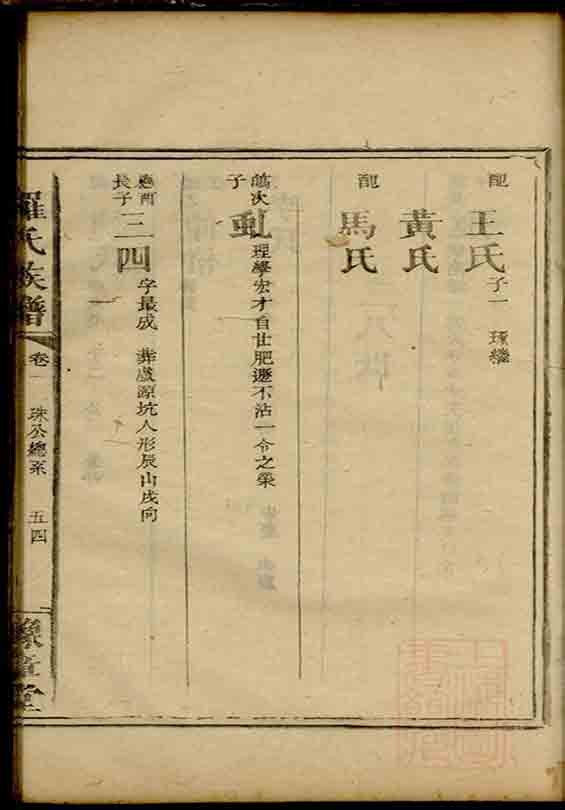 配 王氏 子一 琢繼
黃氏
配 馬氏
次子 虬 理學宏才自甘肥遯不沾一令之榮
長子 三四 字最成 葬戲源坑人形辰山戌向
羅氏族譜 卷一 珠公總系 五四 豫章堂